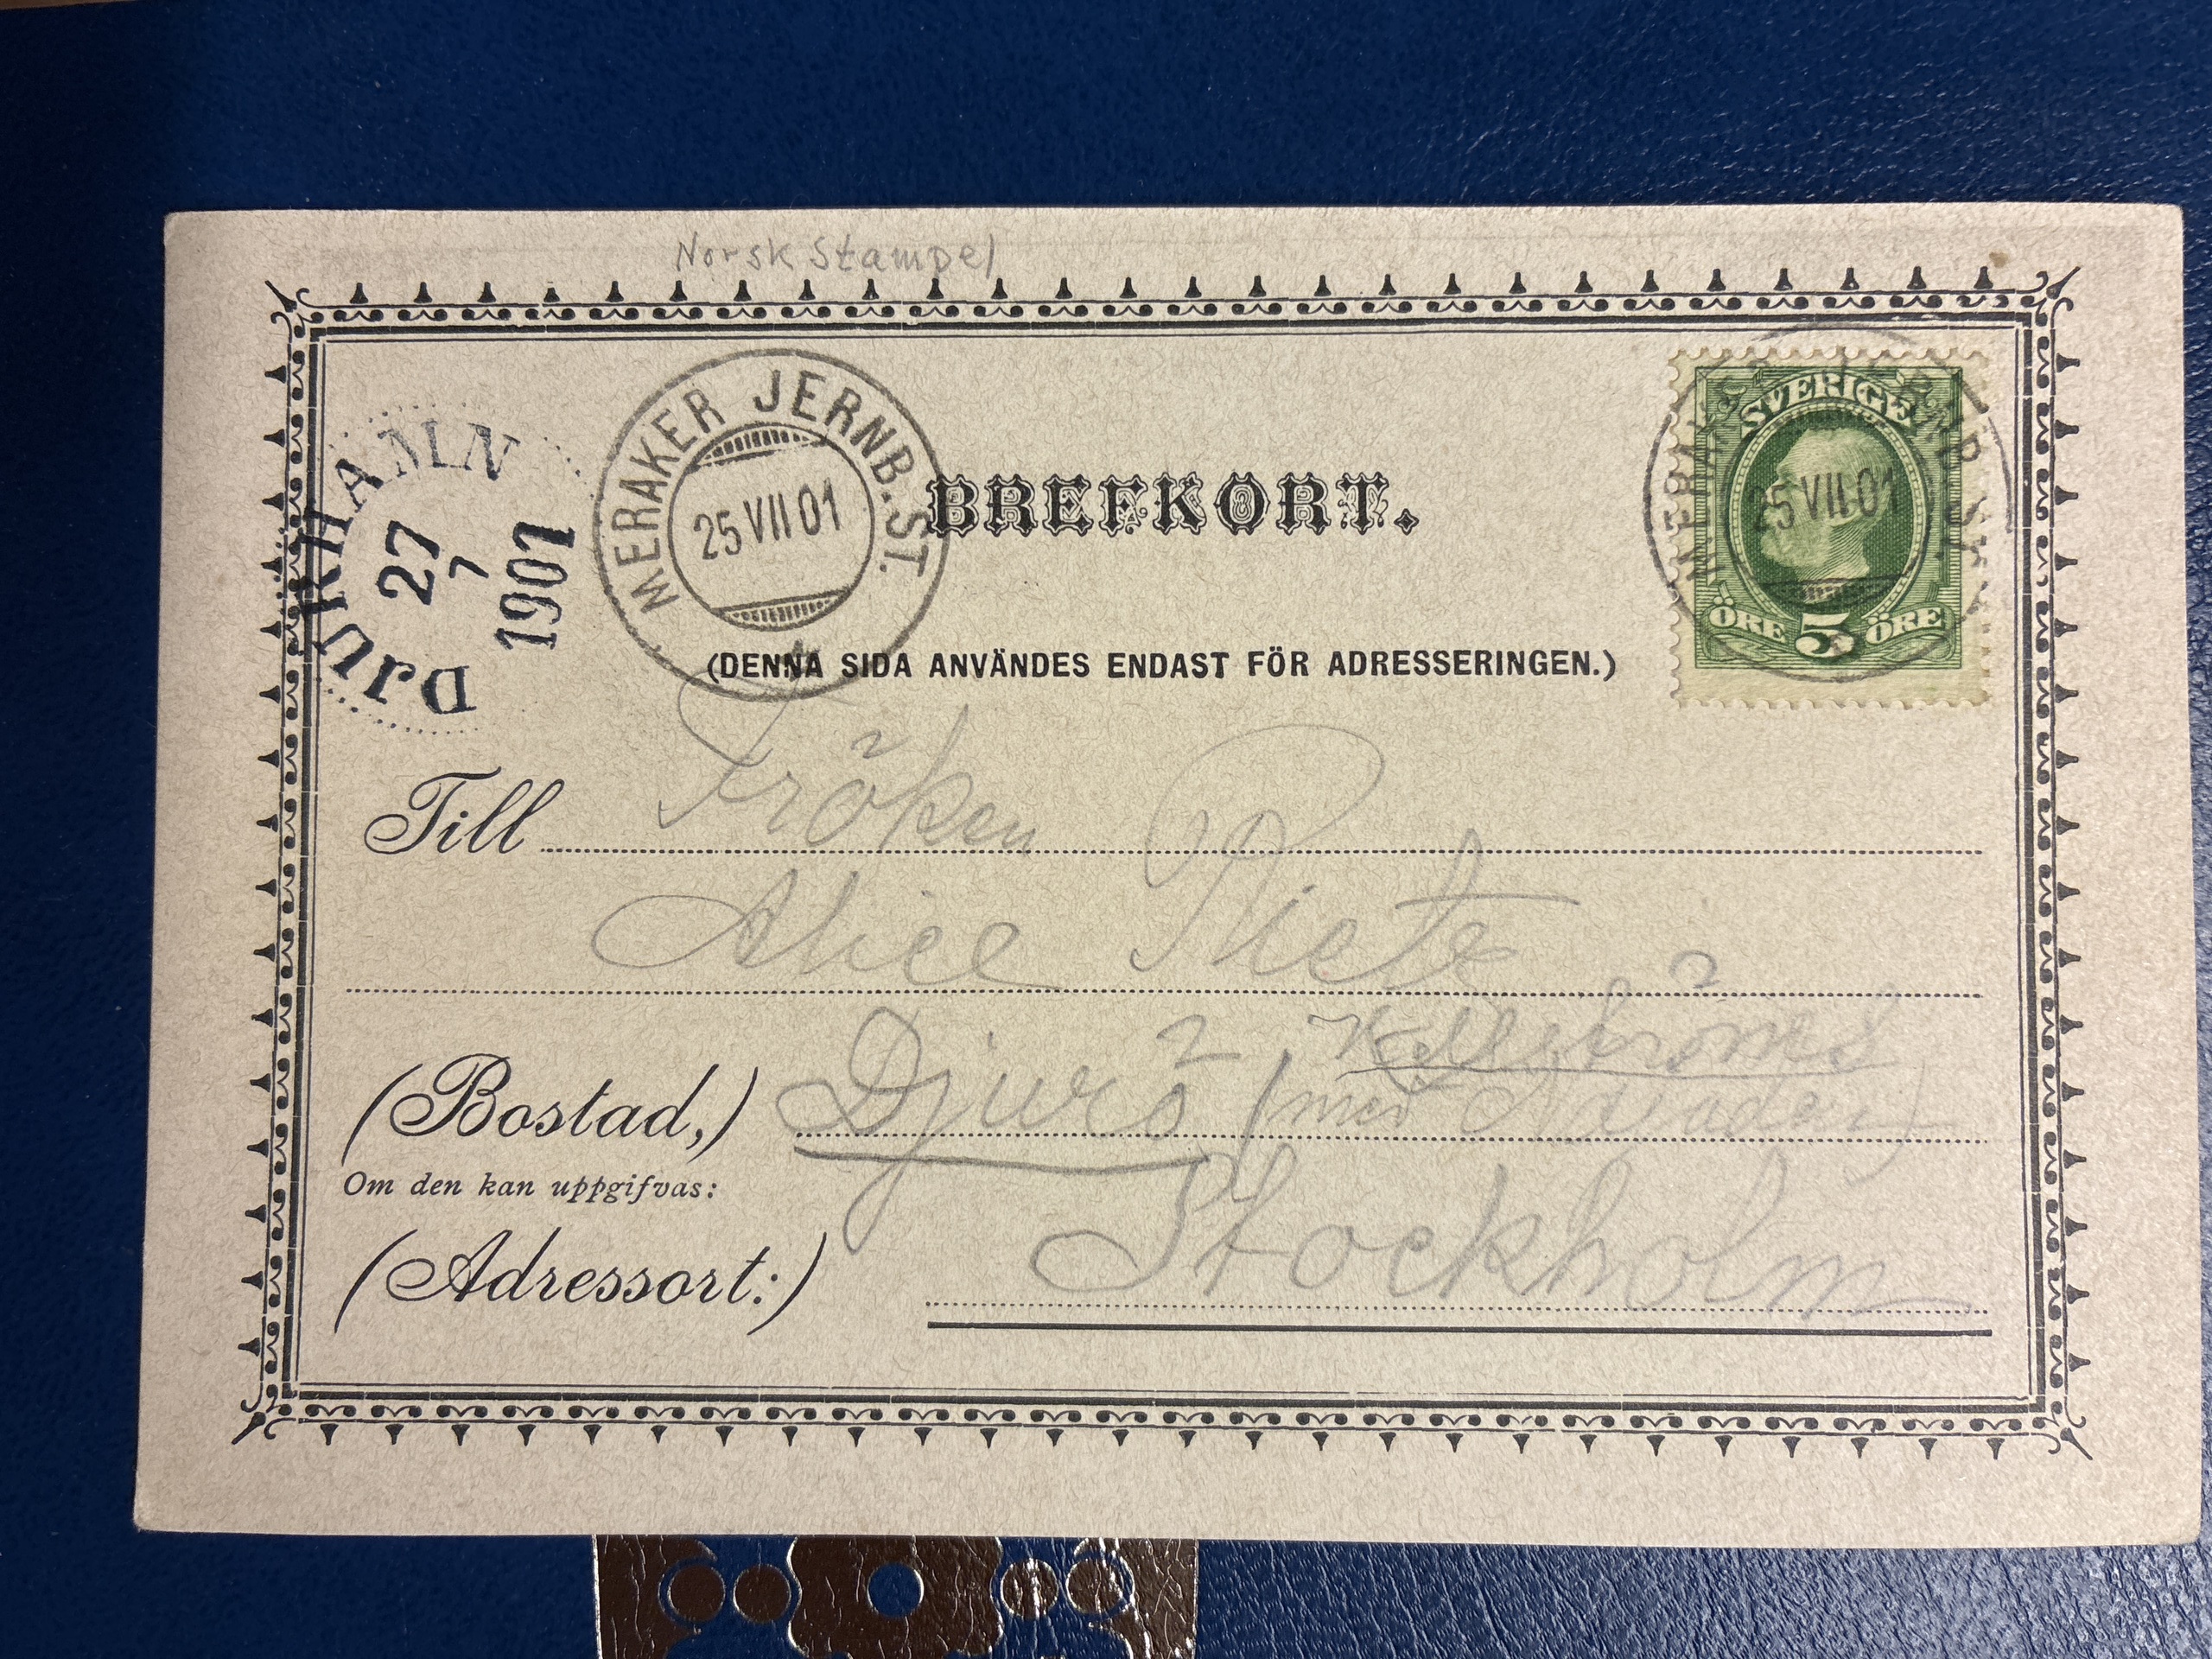 Norsk Stampel
DJURHAMN
27
7
1901
MERAKER JERNB. ST.
25 VII 01
BREFKORT.
SVERIGE
MERAKER JERNB. ST.
25 VII 01
ÖRE 5 ÖRE
(DENNA SIDA ANVÄNDES ENDAST FÖR ADRESSERINGEN.)
Till Fröken
Alice
(Bostad,) Djurö (med Najaden)
Om den kan uppgifvas:
(Adressort:) Stockholm